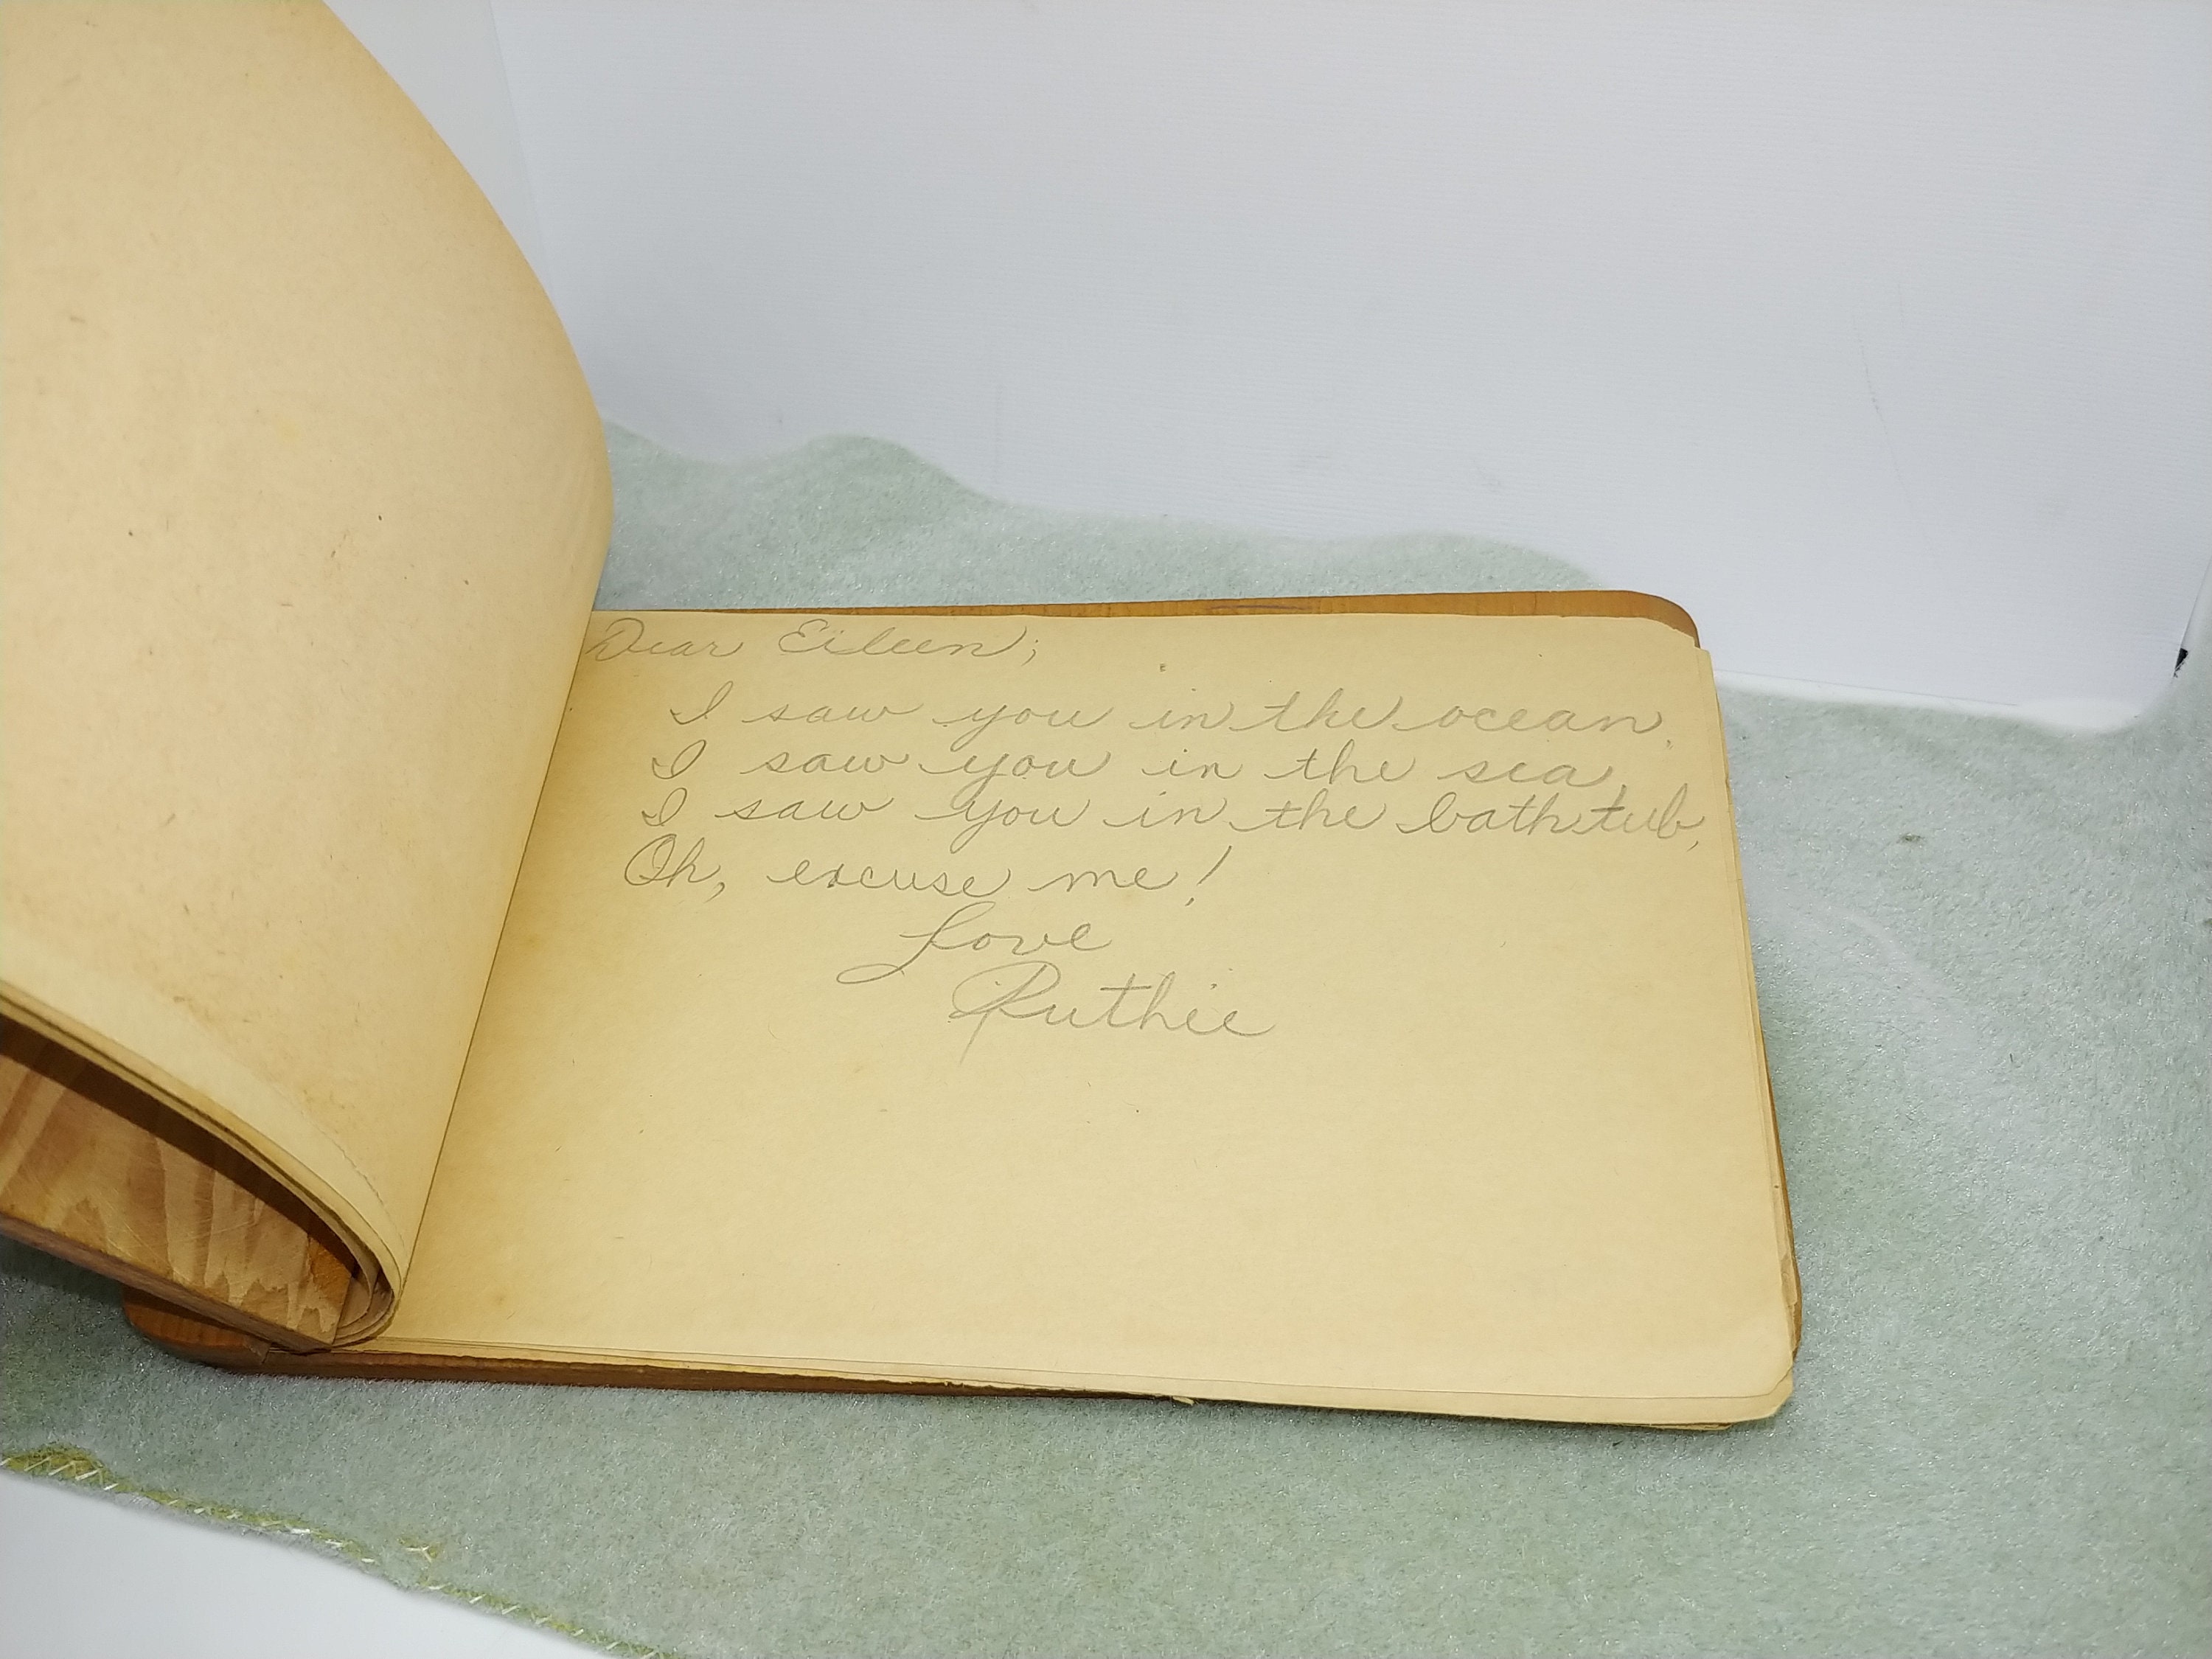 Dear Eileen;
I saw you in the ocean.
I saw you in the sea,
I saw you in the bathtub,
Oh, excuse me!
Love
Ruthie